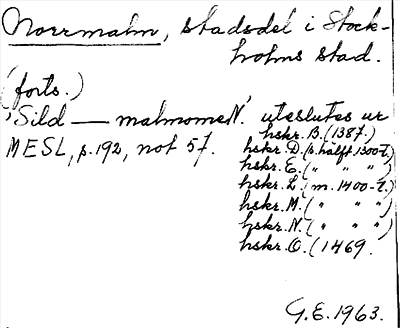 Norrmalm, stadsdel i Stock-
holms stad.
(forts.)
'Sild — malmomeN.' uteslutes ur
hskr. B. (1387.)
MESL, s. 192, not 57.
hskr. D. (s. hälft. 1300-t.)
hskr. E. ( " " " )
hskr. L. (m. 1400-t.)
hskr. M. ( " " " )
hskr. N. ( " " " )
hskr. O. (1469.
G.E. 1963.